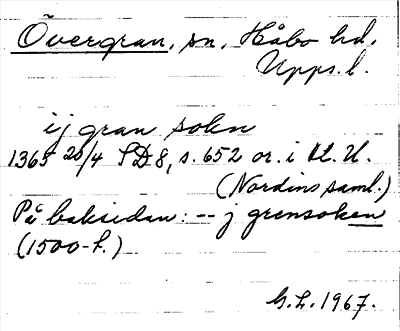 Övergran, sn, Håbo hd,
Upps. l.
i j gran sokn
1365 20/4 SD 8, s. 652 or. i U.
(Nordins saml.)
På baksidan: -- j grensoken
(1500-t.)
G.L. 1967.